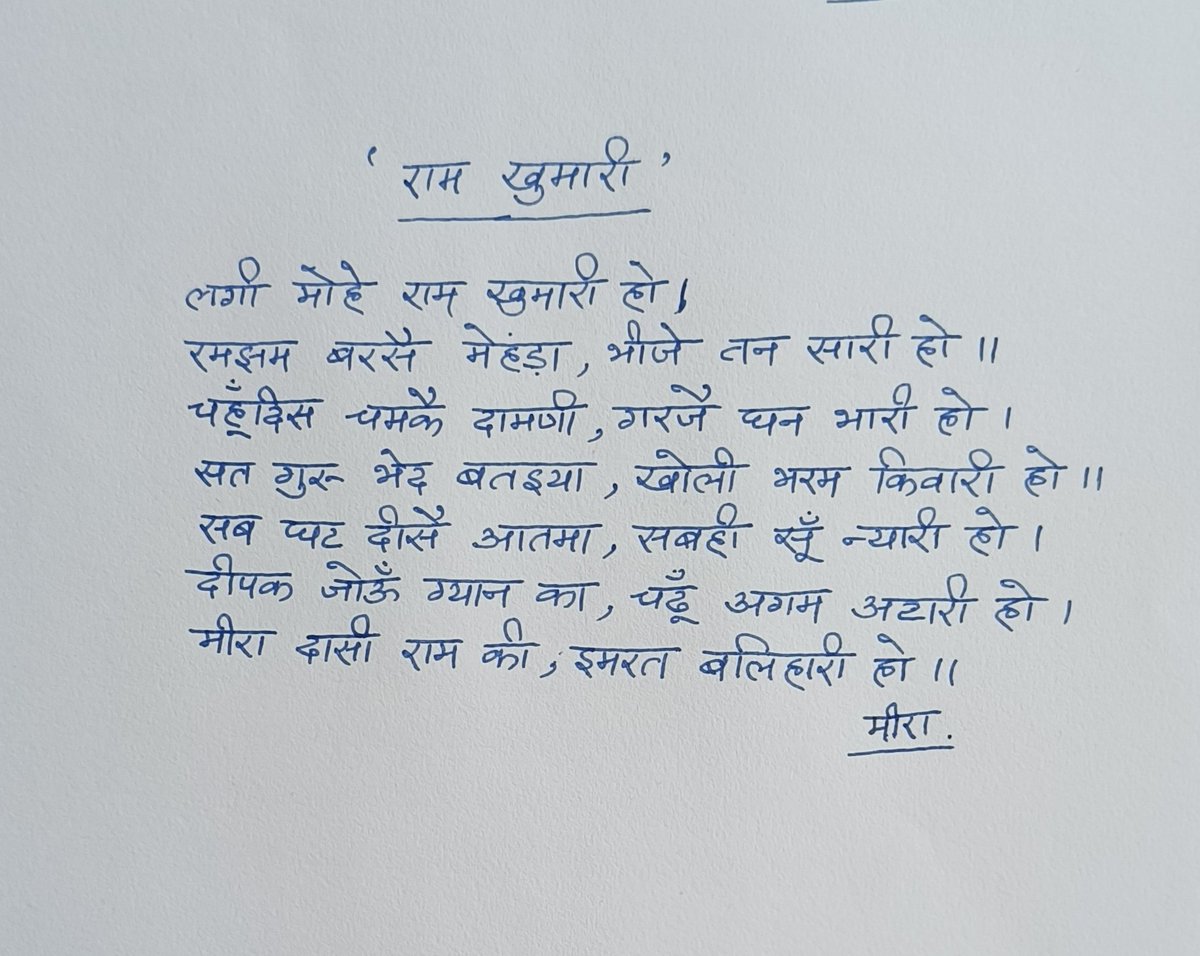 ‘ राम खुमारी ’
लगी मोहे राम खुमारी हो।
रमझम बरसै मेहंड़ा, भीजे तन सारी हो॥
चहूँदिस चमकै दामणी, गरजै घन भारी हो।
सत गुरू भेद बतइया, खोली भरम किवारी हो॥
सब घट दीसै आतमा, सबही सूँ न्यारी हो।
दीपक जोऊँ ग्यान का, चढूँ अगम अटारी हो।
मीरा दासी राम की, इमरत बलिहारी हो॥
मीरा.